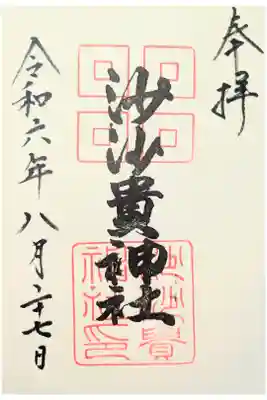 奉拝
沙沙貴神社
沙沙貴
神社印
令和六年八月二十七日